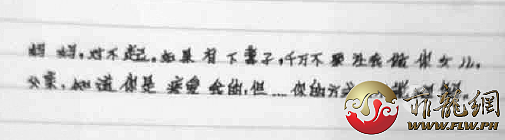 妈妈,对不起,如果有下辈子,千万不要让我做你女儿,
父亲,知道你是疼爱我的,但....你的方式
菲龍網
WWW.FLW.PH